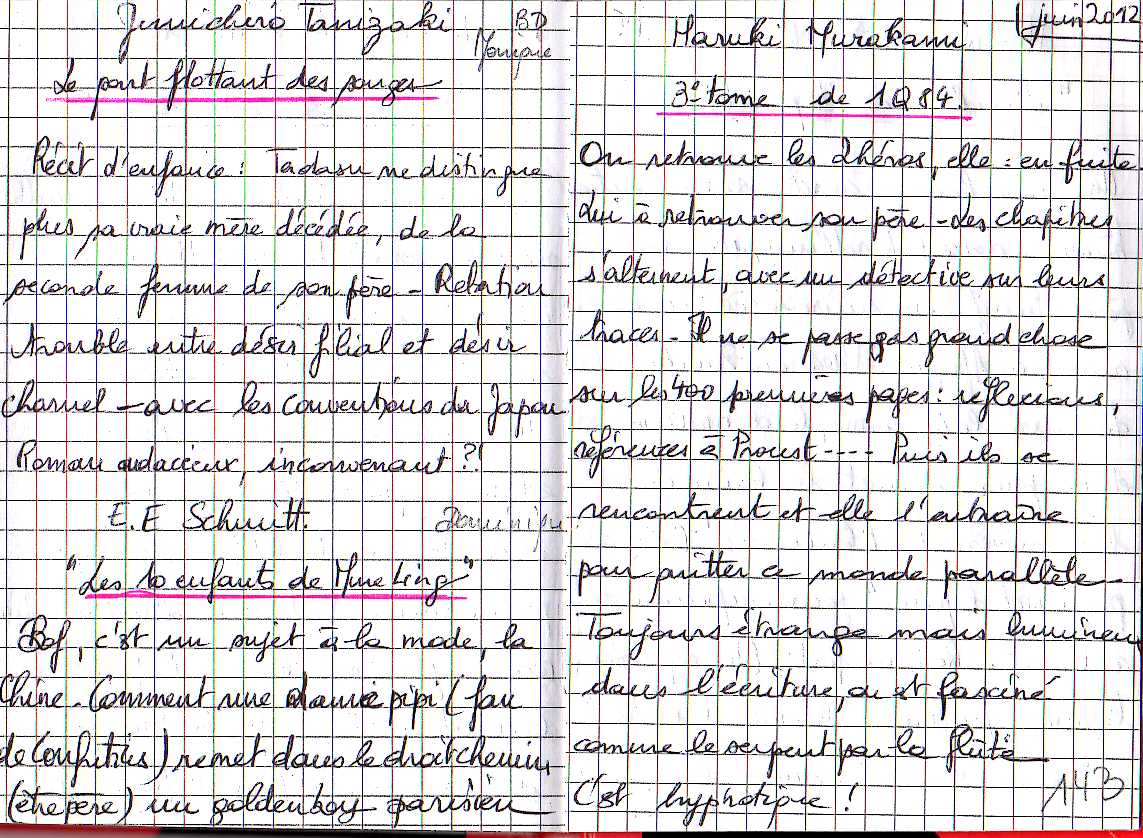 Junichero Tanizaki BD
Monique
Le pont flottant des songes
Récit d'enfance : Tadasu ne distingue
plus sa vraie mère décédée, de la
seconde femme de son père - Relation
trouble entre désir filial et désir
charnel - avec les conventions du Japon
Roman audacieux, inconvenant ?!
E.E Schmitt. Dominique
"Les 10 enfants de Mme Ling"
Bof, c'est un sujet à la mode, la
Chine. Comment une dame pipi (fan
de Confucius) remet dans le droit chemin
(être père) un goldenboy parisien
1 juin 2012
Haruki Murakami
3e tome de 1Q84.
On retrouve les 2 héros, elle : en fuite
lui à retrouver son père - les chapitres
s'alternent, avec un détective sur leurs
traces - Il ne se passe pas grand chose
sur les 400 premières pages : réflexions,
références à Proust---- Puis ils se
rencontrent et elle l'entraîne
pour quitter ce monde parallèle -
Toujours étrange mais lumineux
dans l'écriture, on est fasciné
comme le serpent par la flûte
C'est hyphotique !
143